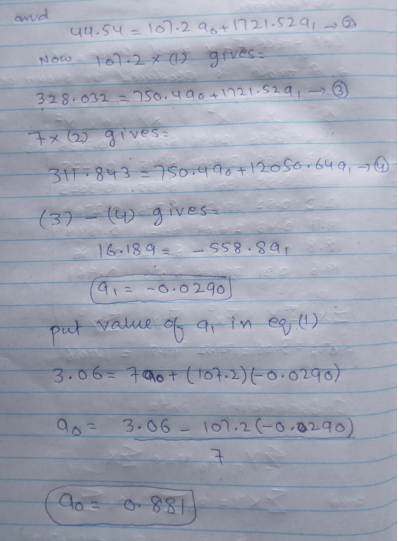 and
44.54 = 107.2 a₀ + 1721.52 a₁ → ②
Now 107.2 × (1) gives:
328.032 = 750.4 a₀ + 1721.52 a₁ → ③
7 × (2) gives:
311.843 = 750.4 a₀ + 12050.64 a₁ → ④
(3) - (4) gives:
16.189 = -558.8 a₁
a₁ = -0.0290
put value of a₁ in eq (1)
3.06 = 7a₀ + (107.2)(-0.0290)
a₀ = 3.06 - 107.2(-0.0290)
7
a₀ = 0.881